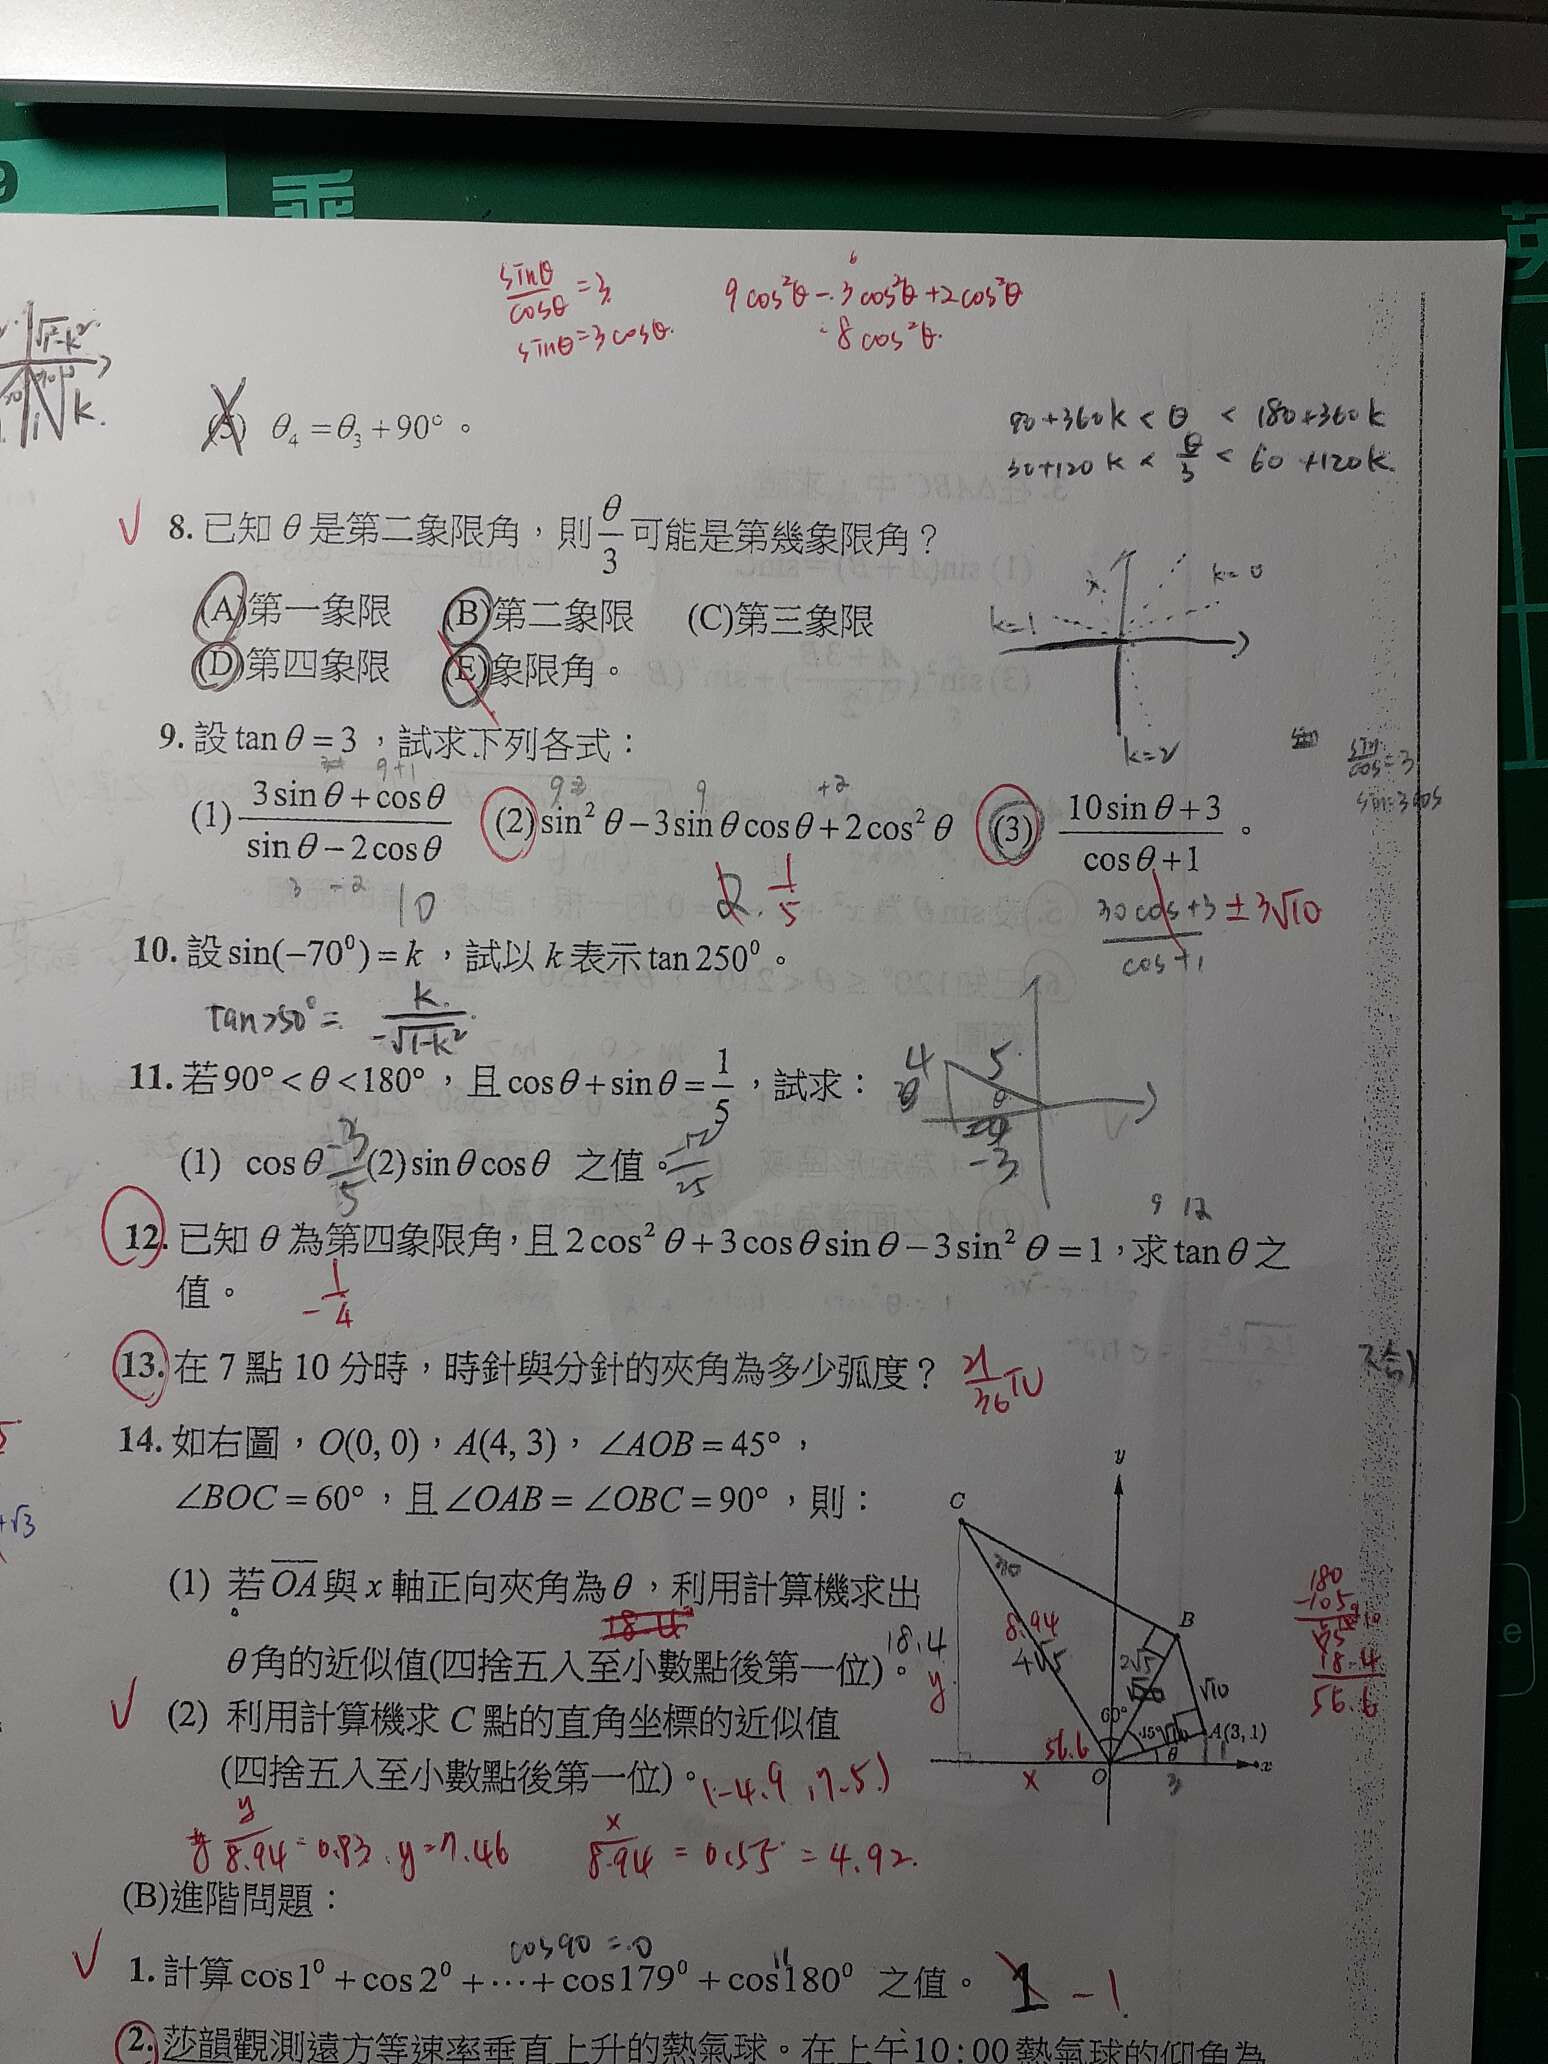 9
乘
英
sinθ/cosθ = 3
sinθ = 3cosθ.
9cos²θ - 3cos²θ + 2cos²θ
6
8cos²θ.
√1²-k²
k.
(5) θ₄ = θ₃ + 90° 。
90+360k < θ < 180+360k
30+120k < θ/3 < 60+120k
8. 已知 θ 是第二象限角，則 θ/3 可能是第幾象限角？
(A)第一象限 (B)第二象限 (C)第三象限
(D)第四象限 (E)象限角。
k=0
k=1
k=2
9. 設 tanθ = 3 ，試求下列各式：
9+1
(1) (3sinθ + cosθ)/(sinθ - 2cosθ) (2) sin²θ - 3sinθcosθ + 2cos²θ (3) (10sinθ + 3)/(cosθ + 1) 。
3 -2
10
2. 1/5
(30cos+3)/(cos+1) ±3√10
sin/cos = 3
sin=3cos
10. 設 sin(-70⁰) = k ，試以 k 表示 tan 250⁰ 。
tan250° = k/-√1-k²
11. 若 90° < θ < 180° ，且 cosθ + sinθ = 1/5 ，試求：
(1) cosθ -3/5 (2) sinθcosθ 之值。-12/25
4
5
θ
-3
9 12
12. 已知 θ 為第四象限角，且 2cos²θ + 3cosθsinθ - 3sin²θ = 1，求 tanθ 之
值。 -1/4
13. 在 7 點 10 分時，時針與分針的夾角為多少弧度？ 31/36 π
14. 如右圖，O(0, 0)，A(4, 3)，∠AOB = 45° ，
∠BOC = 60° ，且 ∠OAB = ∠OBC = 90° ，則：
(1) 若 OA 與 x 軸正向夾角為 θ ，利用計算機求出
18.4
θ 角的近似值(四捨五入至小數點後第一位)。18.4
(2) 利用計算機求 C 點的直角坐標的近似值
(四捨五入至小數點後第一位)。(-4.9 , 7.5)
y/8.94 = 0.83. y=7.46 x/8.94 = 0.55 = 4.92.
y
C
30
B
8.94
4√5
2√5
√10
60°
45°
A(3, 1)
56.6
θ
1
x
O
3
y
x
180
-105
18.4
56.6
(B)進階問題：
cos90 = 0
1. 計算 cos1⁰ + cos2⁰ + ⋯ + cos179⁰ + cos180⁰ 之值。 1 -1
2. 莎韻觀測遠方等速率垂直上升的熱氣球。在上午10:00熱氣球的仰角為